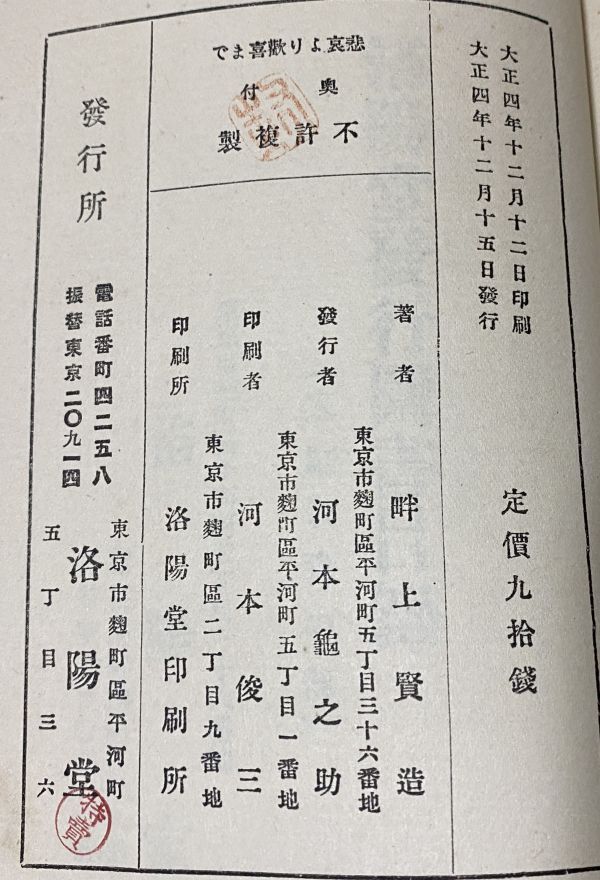 大正四年十二月十二日印刷
大正四年十二月十五日發行
定價九拾錢
悲哀より歡喜まで
奥付
不許複製
著者
畔上賢造
東京市麴町區平河町五丁目三十六番地
發行者
河本龜之助
東京市麴町區平河町五丁目一番地
印刷者
河本俊三
東京市麴町區二丁目九番地
印刷所
洛陽堂印刷所
發行所
電話番町四二五八
振替東京二〇九一四
東京市麴町區平河町
洛陽堂
五丁目三六
特賣